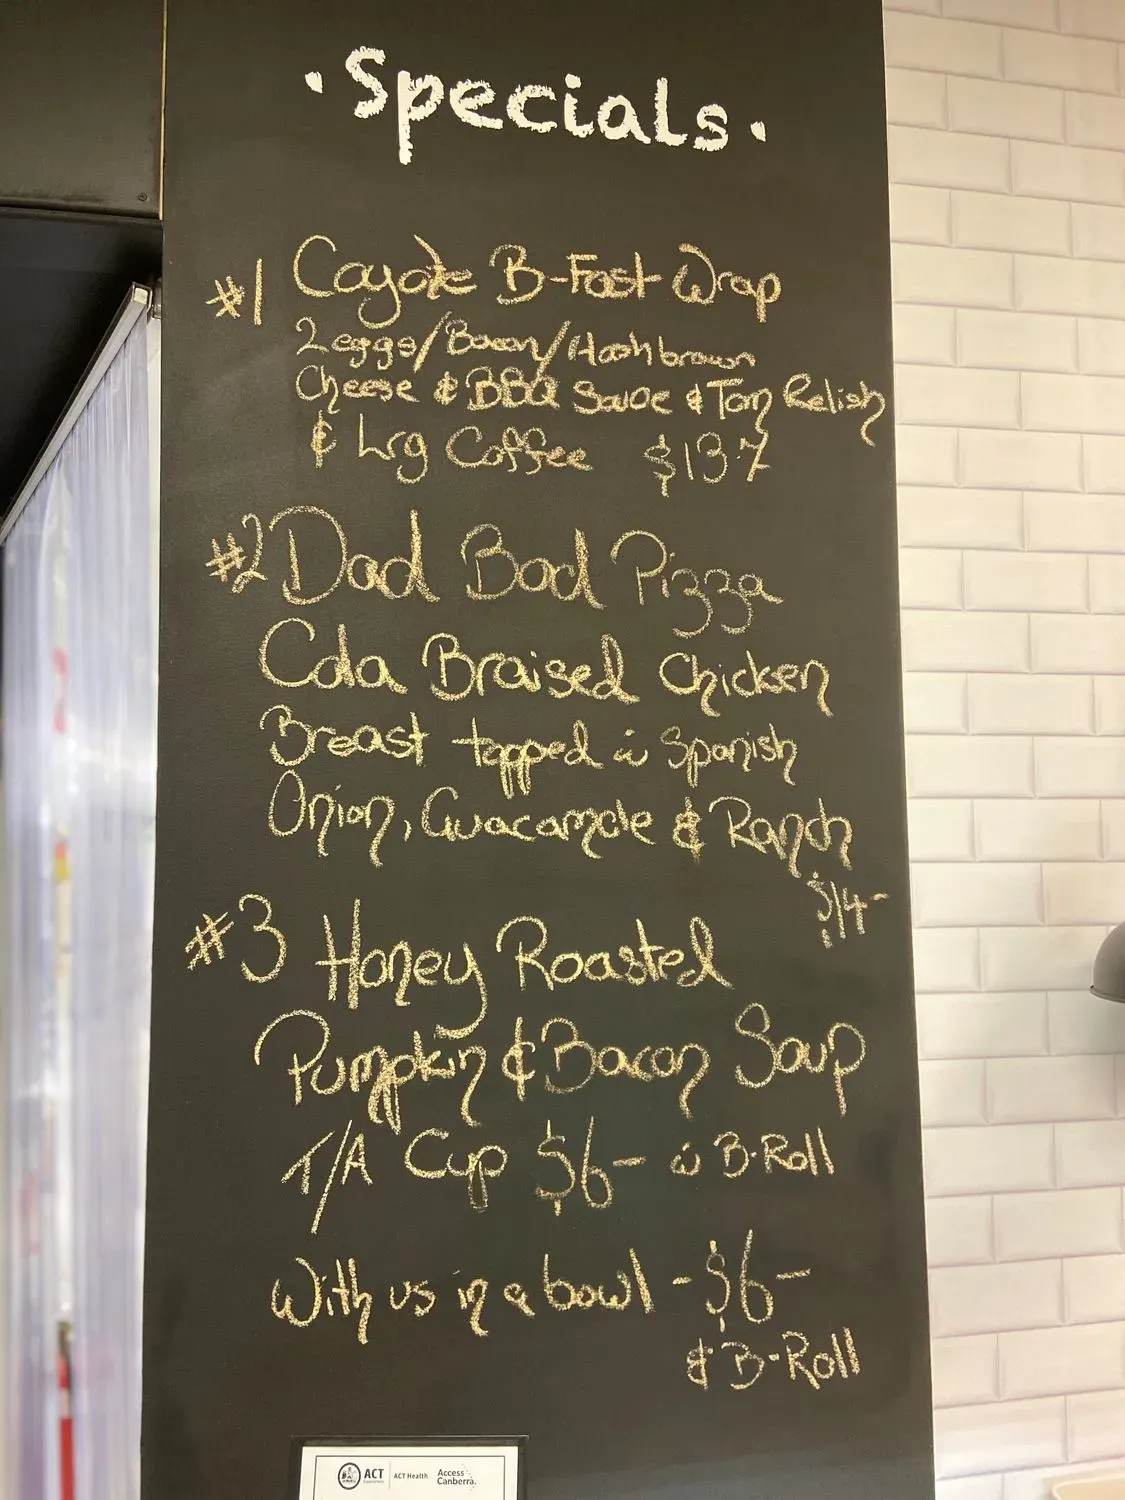 · Specials ·
#1 Coyote B-Fast Wrap
2 eggs/Bacon/Hashbrown
Cheese & BBQ Sauce & Tom Relish
& Lrg Coffee $13.7
#2 Dad Bod Pizza
Cola Braised Chicken
Breast topped ω Spanish
Onion, Guacamole & Ranch
$14-
#3 Honey Roasted
Pumpkin & Bacon Soup
T/A Cup $6- ω B-Roll
With us in a bowl -$6-
& B-Roll
ACT
ACT Health
Access
Canberra.